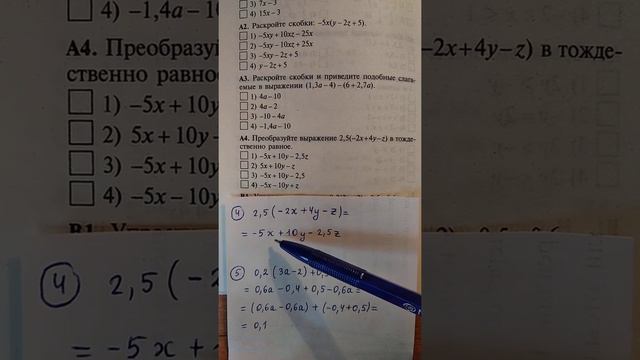 3) 7x−3
4) 15x−3
А2. Раскройте скобки: −5x(y−2z+5).
1) −5xy+10xz−25x
2) −5xy−10xz+25x
3) −5xy−2z+5
4) y−2z+5
А3. Раскройте скобки и приведите подобные слага-
емые в выражении (1,3a−4)−(6+2,7a).
1) 4a−10
2) 4a−2
3) −10−4a
4) −1,4a−10
А4. Преобразуйте выражение 2,5(−2x+4y−z) в тожде-
ственно равное.
1) −5x+10y−2,5z
2) 5x+10y−z
3) −5x+10y−2,5
4) −5x−10y+z
④ 2,5(−2x+4y−z)=
= −5x+10y−2,5z
⑤ 0,2(3a−2)+0,
= 0,6a−0,4+0,5−0,6a=
= (0,6a−0,6a)+(−0,4+0,5)=
= 0,1
4) −1,4a−10
А4. Преобразуй
ственно равное
1) −5x+10y
2) 5x+10y−
3) −5x+10y
4) −5x−10y
④ 2,5(−2
= −5x+
−2x+4y−z) в тожде-